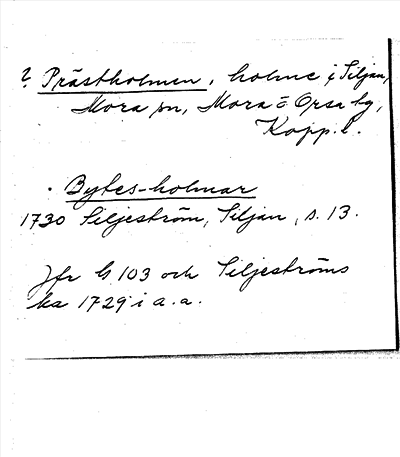 ? Prästholmen, holme i Siljan,
Mora sn, Mora o Orsa tg,
Kopp. l.
· Bykes-holmar
1730 Siljeström, Siljan, s. 13.
Jfr G 103 och Siljeströms
ka 1729 i a.a.